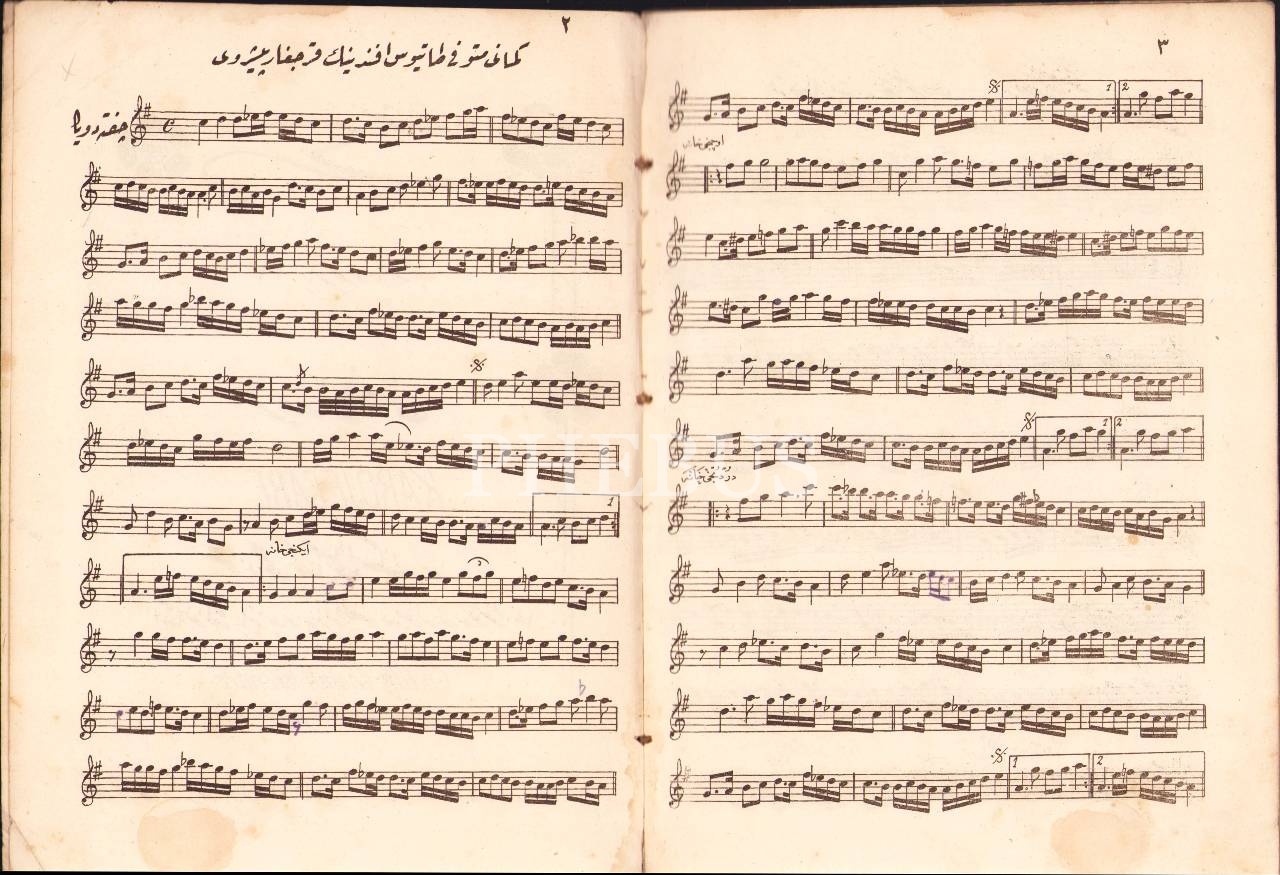 ٢
كمانى متوفى طاتيوس افندينك قرجغار پيشروى
چفته دويك
1
ايكنجى خانه
٣
1 2
اوچنجى خانه
1 2
دردنجى خانه
1 2
PHEBUS